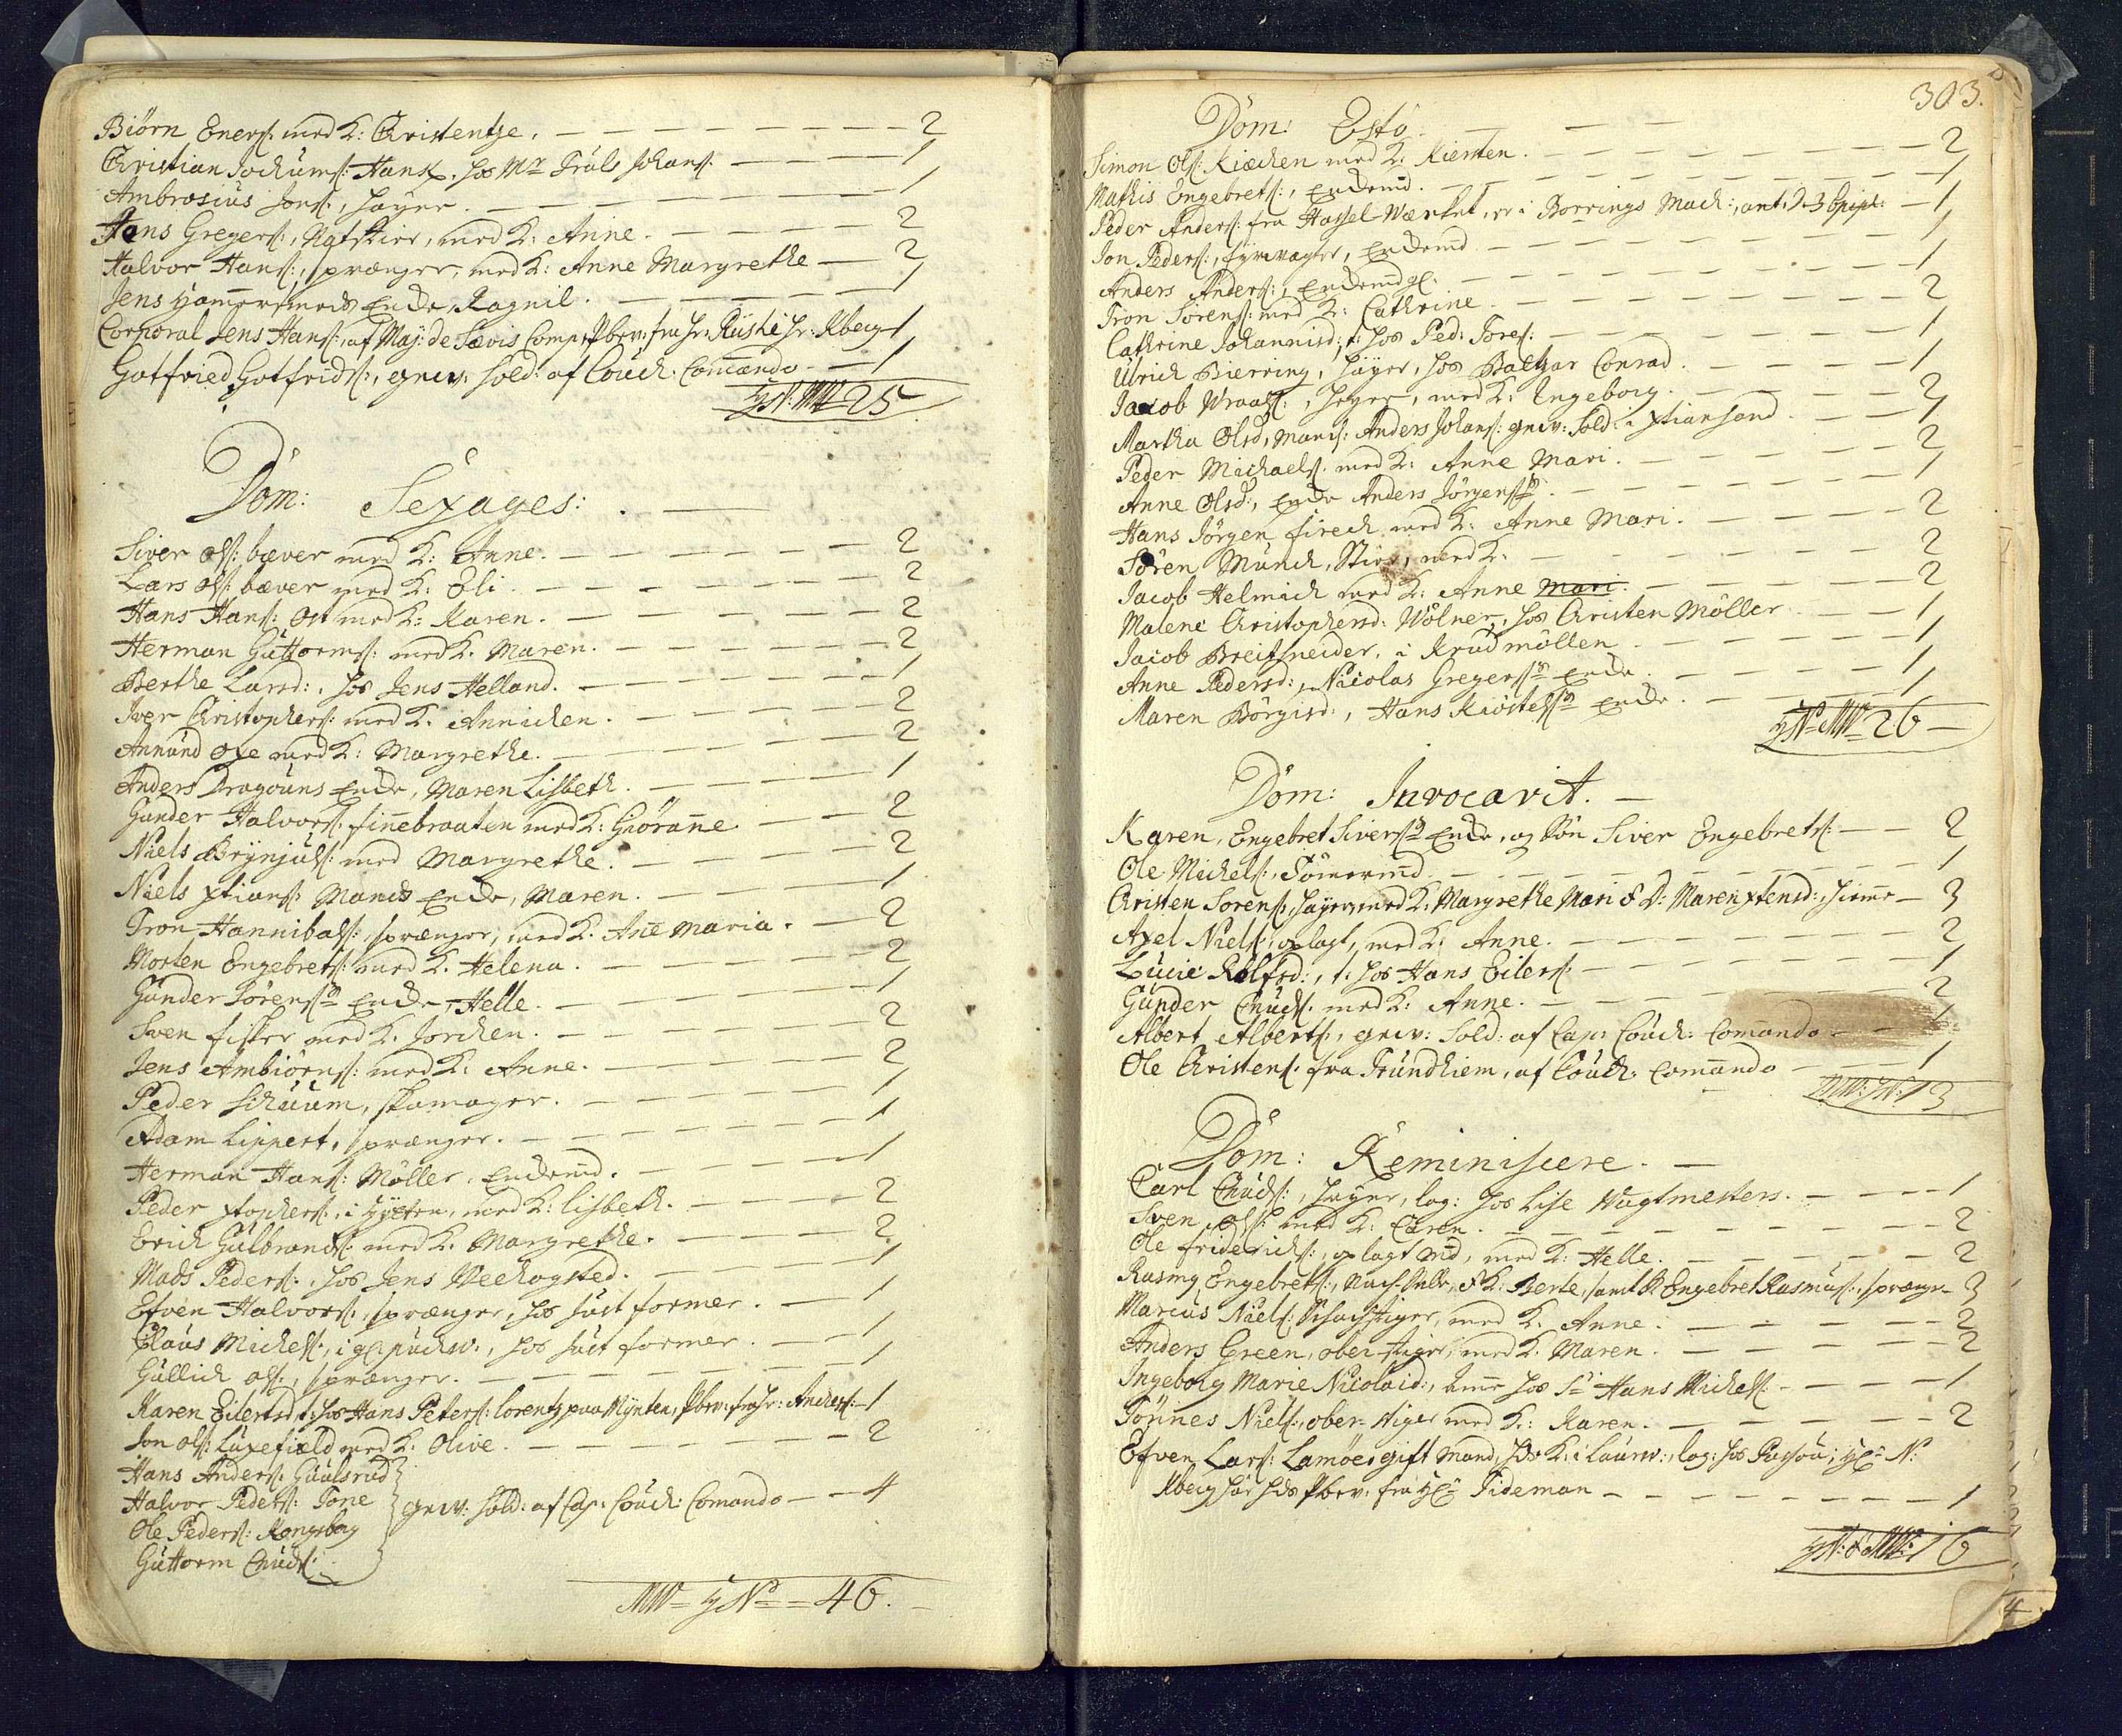 Biörn Eners: med K: Christentze. 2
Christian Jochums: Hans hos Mr Truls Johans: 1
Ambrosius Jons:, heyer. 1
Hans Gregers:, Natskier, med K: Anne. 2
Halvor Hans:, sprænger, med K: Anne Margrethe 2
Jens Hamersmeds Encke, Ragnil. 1
Corporal Jens Hans: af Maj: de Sevis Comp: fra Hr: Kberg 1
Gotfried Gotfrids:, gev: sold: af Couch: Comando. 1
25
Dom: Sexages:
Siver Ols: bæver med K: Anne. 2
Lars Ols: bæver med K: Eli. 2
Hans Hans: Ost med K: Karen. 2
Herman Guttorms: med K. Maren. 2
Berthe Larsd:, hos Jens Helland. 1
Iver Christophers: med K. Annichen. 2
Annund Oxe med K: Margrethe. 2
Anders Dragouns Encke, Maren Lisbeth. 1
Gunder Halvors: finnebraaten med K: Giörane. 2
Niels Brynjuls: med Margrethe. 2
Niels xtians: Mands Encke, Maren. 1
Tron Hannibals:, sprænger, med K. Ane Maria. 2
Morten Engebrets: med K. Helena. 2
Gunder Sörens: Encke, Helle. 1
Sven fisker med K. Jorchen. 2
Jens Ambiörns: med K: Anne. 2
Peder Schuum, skomager. 1
Adam Lippert, sprænger. 1
Herman Hans: Möller, Enckemd. 1
Peder xtophers:, i Hytten, med K: Lisbeth. 2
Erich Gulbrands: med K. Margrethe. 2
Mads Peders:, hos Jens Weehogsted. 1
Efven Halvors:, sprænger, hos Just former. 1
Claus Michels:, i puchw:, hos Just former. 1
Gullich Ols:, sprænger. 1
Karen Eilertsd: t: hos Hans Peters: Lorentz paa Mynten, fra Hr: Anders: 1
Jon Ols: Luxefield med K: Olive. 2
Hans Anders: Guulsrud
Halvor Peders: Tone
Ole Peders: Kongsberg
Guttorm Knuds:
gev: sold: af Cap: Couch: Comando 4
46.
303.
Dom: Esto
Simon Ols: Kiæchen med K: Kiersten. 2
Mathis Engebrets:, Enckemd. 1
Peder Anders: fra Hassel-Værket, er i Borrings Mach:, ant: D. 3 Epiph: 1
Jon Peders:, fyrvagter, Enckemd 1
Anders Anders:, Enckemd 1
Tron Sörens: med K: Cathrine 2
Cathrine Johannisd:, t: hos Ped: Tores: 1
Ulrich Bierring, heyer, hos Baltzar Conrad. 1
Jacob Wraals:, heyer, med K: Ingeborg. 2
Martha Olsd, mand: Anders Johans: gev: Sold: i xtiansand 1
Peder Michaels: med K: Anne Mari. 2
Anne Olsd:, Encke Anders Jörgens: 1
Hans Jörgen fireck med K: Anne Mari. 2
Sören Munch, med K: 2
Jacob Helmich med K: Anne Mari. 2
Malene Christophersd: Wölner, hos Christen Möller 1
Jacob Breitsneider, i Krudmöllen 1
Anne Pedersd:, Nicolas Gregers: Encke. 1
Maren Börgisd:, Hans Kiöstels: Encke. 1
26
Dom: Invocavit.
Karen, Engebret Sivers: Encke, og Sön Siver Engebrets: 2
Ole Michels:, Tömermd. 1
Christen Sorens: heyer, med K: Margrethe Mari & D: Maren xtensd:, hieme 3
Axel Niels:, oplagt, med K: Anne. 2
Lucie Rolfsd:, t: hos Hans Eilers: 1
Gunder Knuds: med K: Anne. 2
Albert Alberts:, gev: Sold: af Cap: Couch: Comando 1
Ole Christens: fra Trundhiem, af Couch: Comando 1
13
Dom: Reminiscere.
Carl Knuds:, heyer, log: hos Lise Wagtmesters. 1
Sven Ols: med K: Caren. 2
Ole friderichs:, oplagt md, med K: Helle. 2
Rasmg Engebrets:, & K: Berte, samt S: Engebret Rasmus:, sprænger 3
Marcus Niels: Schachtiger, med K. Anne. 2
Anders Green, ober-stiger, med K. Maren. 2
Ingeborg Marie Nicolaid:, hos Sr Hans Michels: 1
Tönnes Niels:, ober-stiger med K: Karen. 2
Efven Lars: Lamöe, gift mand, K: i Laurw:, log: hos Passou, N:
Kberg fra Tideman 1
16
4